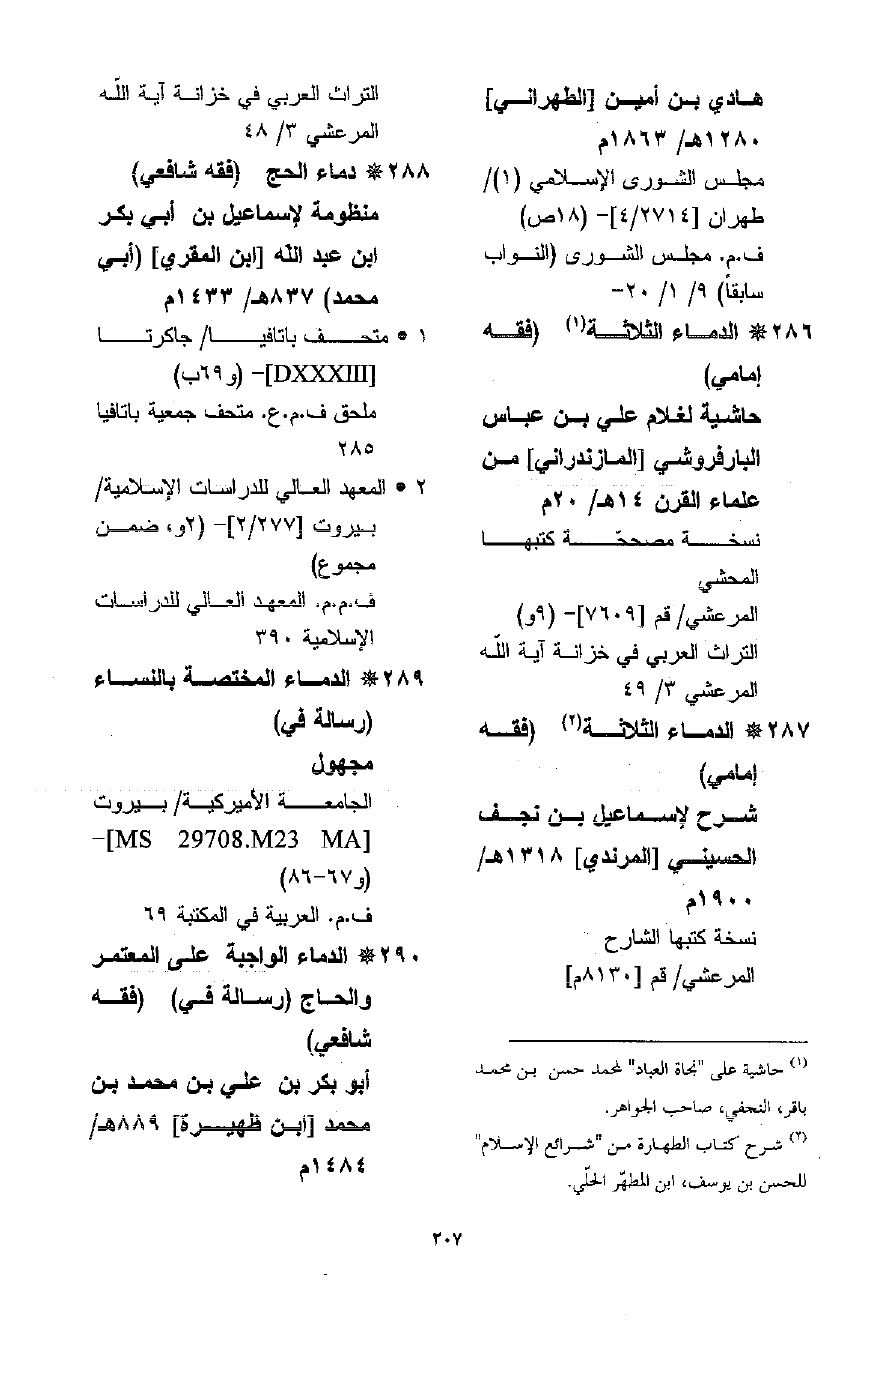 هادي بن أمين [الطهراني]
١٢٨٠هـ/ ١٨٦٣م
مجلس الشورى الإسلامي (١)/
طهران [٤/٢٧١٤]- (١٨ص)
ف.م. مجلس الشورى (النواب
سابقاً) ٩/ ١/ ٢٠-
٢٨٦ * الدماء الثلاثة(١) (فقه
إمامي)
حاشية لغلام علي بن عباس
البارفروشي [المازندراني] من
علماء القرن ١٤هـ/ ٢٠م
نسخة مصححة كتبها
المحشي
المرعشي/ قم [٧٦٠٩]- (٩و)
التراث العربي في خزانة آية اللّه
المرعشي ٣/ ٤٩
٢٨٧ * الدماء الثلاثة(٢) (فقه
إمامي)
شرح لإسماعيل بن نجف
الحسيني [المرندي] ١٣١٨هـ/
١٩٠٠م
نسخة كتبها الشارح
المرعشي/ قم [٨١٣٠م]
(١) حاشية على "نجاة العباد" لمحمد حسن بن محمد
باقر، النجفي، صاحب الجواهر.
(٢) شرح كتاب الطهارة من "شرائع الإسلام"
للحسن بن يوسف، ابن المطهّر الحلّي.
التراث العربي في خزانة آية اللّه
المرعشي ٣/ ٤٨
٢٨٨ * دماء الحج (فقه شافعي)
منظومة لإسماعيل بن أبي بكر
ابن عبد الله [ابن المقري] (أبي
محمد) ٨٣٧هـ/ ١٤٣٣م
١ • متحف باتافيا/ جاكرتا
[DXXXIII]- (و٦٩ب)
ملحق ف.م.ع. متحف جمعية باتافيا
٢٨٥
٢ • المعهد العالي للدراسات الإسلامية/
بيروت [٢/٢٧٧]- (٢و، ضمن
مجموع)
ف.م.م. المعهد العالي للدراسات
الإسلامية ٣٩٠
٢٨٩ * الدماء المختصة بالنساء
(رسالة في)
مجهول
الجامعة الأميركية/ بيروت
[MS 29708.M23 MA]-
(و٦٧-٨٦)
ف.م. العربية في المكتبة ٦٩
٢٩٠ * الدماء الواجبة على المعتمر
والحاج (رسالة في) (فقه
شافعي)
أبو بكر بن علي بن محمد بن
محمد [ابن ظهيرة] ٨٨٩هـ/
١٤٨٤م
٢٠٧